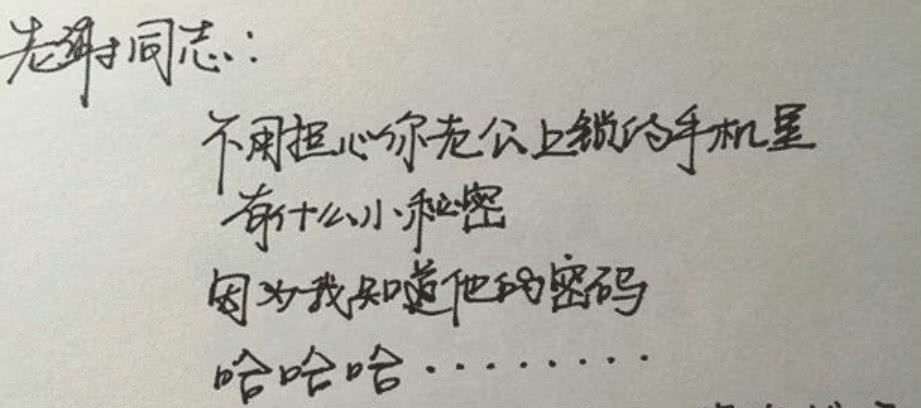 老谢同志：
不用担心你老公上锁的手机里
有什么小秘密
因为我知道他的密码
哈哈哈·········